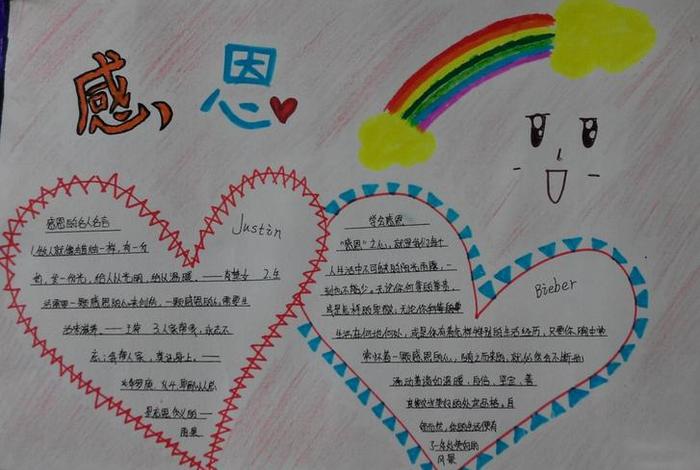 感恩
感恩的名人名言
Justin
1.做人就像蜡烛一样,有一分
热,发一份光,给人以光明,给以温暖。——肖楚女 2.生
活需要一颗感恩的心来创造,一颗感恩的心需要生
活来滋养。——王符 3.人家帮我,永志不
忘;我帮人家,莫记心上。——
华罗庚
是忘恩负义的——
雨果
学会感恩
“感恩”之心,就是我们每个
人生活中不可或缺的阳光雨露,一
刻也不能少。无论你何等的尊贵,
或是怎样的卑微;无论你
生活在何地何处,或是你有着怎样特别的生活经历,只要你胸中
常怀着一颗感恩的心,随之而来的,就必然会不断地
涌动着诸如温暖、自信、坚定、善
良
这些美好的处世品格。自
然而然,你的生活便有
了一处处动人的
风景
Bieber